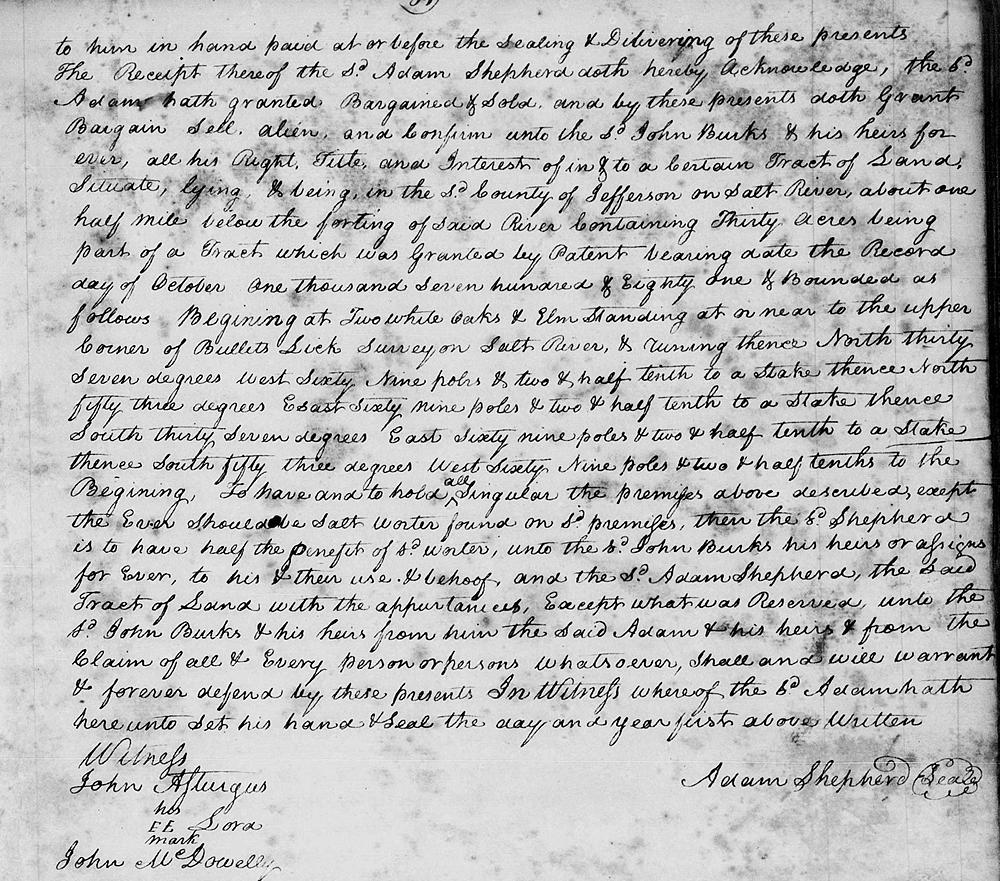 to him in hand paid at or before the Sealing & Delivering of these presents
The Receipt thereof the Sd. Adam Shepherd doth hereby Acknowledge, the Sd.
Adam hath granted Bargained & Sold. and by these presents doth Grant
Bargain Sell. alien, and Confirm unto the Sd. John Burks & his heirs for
ever, all his Right, Title, and Interest of in & to a Certain Tract of Land,
Situate, lying, & being, in the Sd. County of Jefferson on Salt River, about one
half mile below the forting of Said River Containing Thirty Acres being
part of a Tract which was Granted by Patent bearing date the Record
day of October One thousand Seven hundred & Eighty One & Bounded as
follows Begining at Two white Oaks & Elm Standing at or near to the upper
Corner of Bullets Lick Survey on Salt River, & runing thence North thirty
Seven degrees West Sixty Nine poles & two & half tenth to a Stake thence North
fifty three degrees Esast Sixty nine poles & two & half tenth to a Stake thence
South thirty Seven degrees East Sixty nine poles & two & half tenth to a Stake
thence South fifty three degrees West Sixty Nine poles & two & half tenths to the
Begining, To have and to hold all Singular the premises above described, except
the Ever Should be Salt Worter found on Sd. premises, then the Sd. Shepherd
is to have half the benefit of Sd. worter, unto the Sd. John Burks his heirs or assigns
for Ever, to his & their use & behoof, and the Sd. Adam Shepherd, the Said
Tract of Land with the appurtances, Except what was Reserved, unto the
Sd. John Burks & his heirs from him the Said Adam & his heirs & from the
Claim of all & Every person or persons Whatsoever, Shall and will warrant
& forever defend by these presents In Witness whereof the Sd. Adam hath
here unto Set his hand & Seal the day and year first above Written
Witness
John Asturgus
Adam Shepherd Seal
his
EE Lord
mark
John McDowell